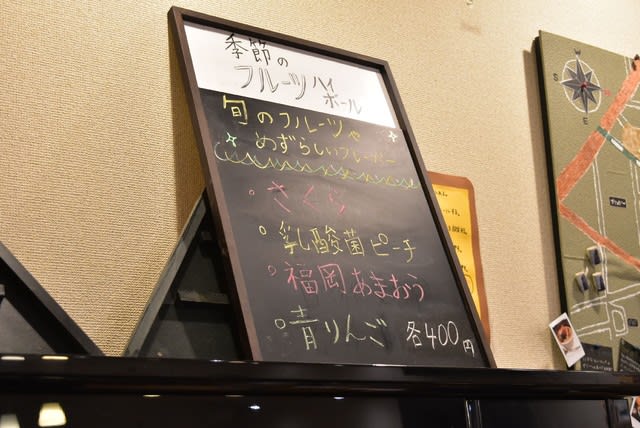 季節の
フルーツハイ
ボール
旬のフルーツや
めずらしいフレーバー
さくら
乳酸菌ピーチ
福岡あまおう
青りんご 各400円
S
E